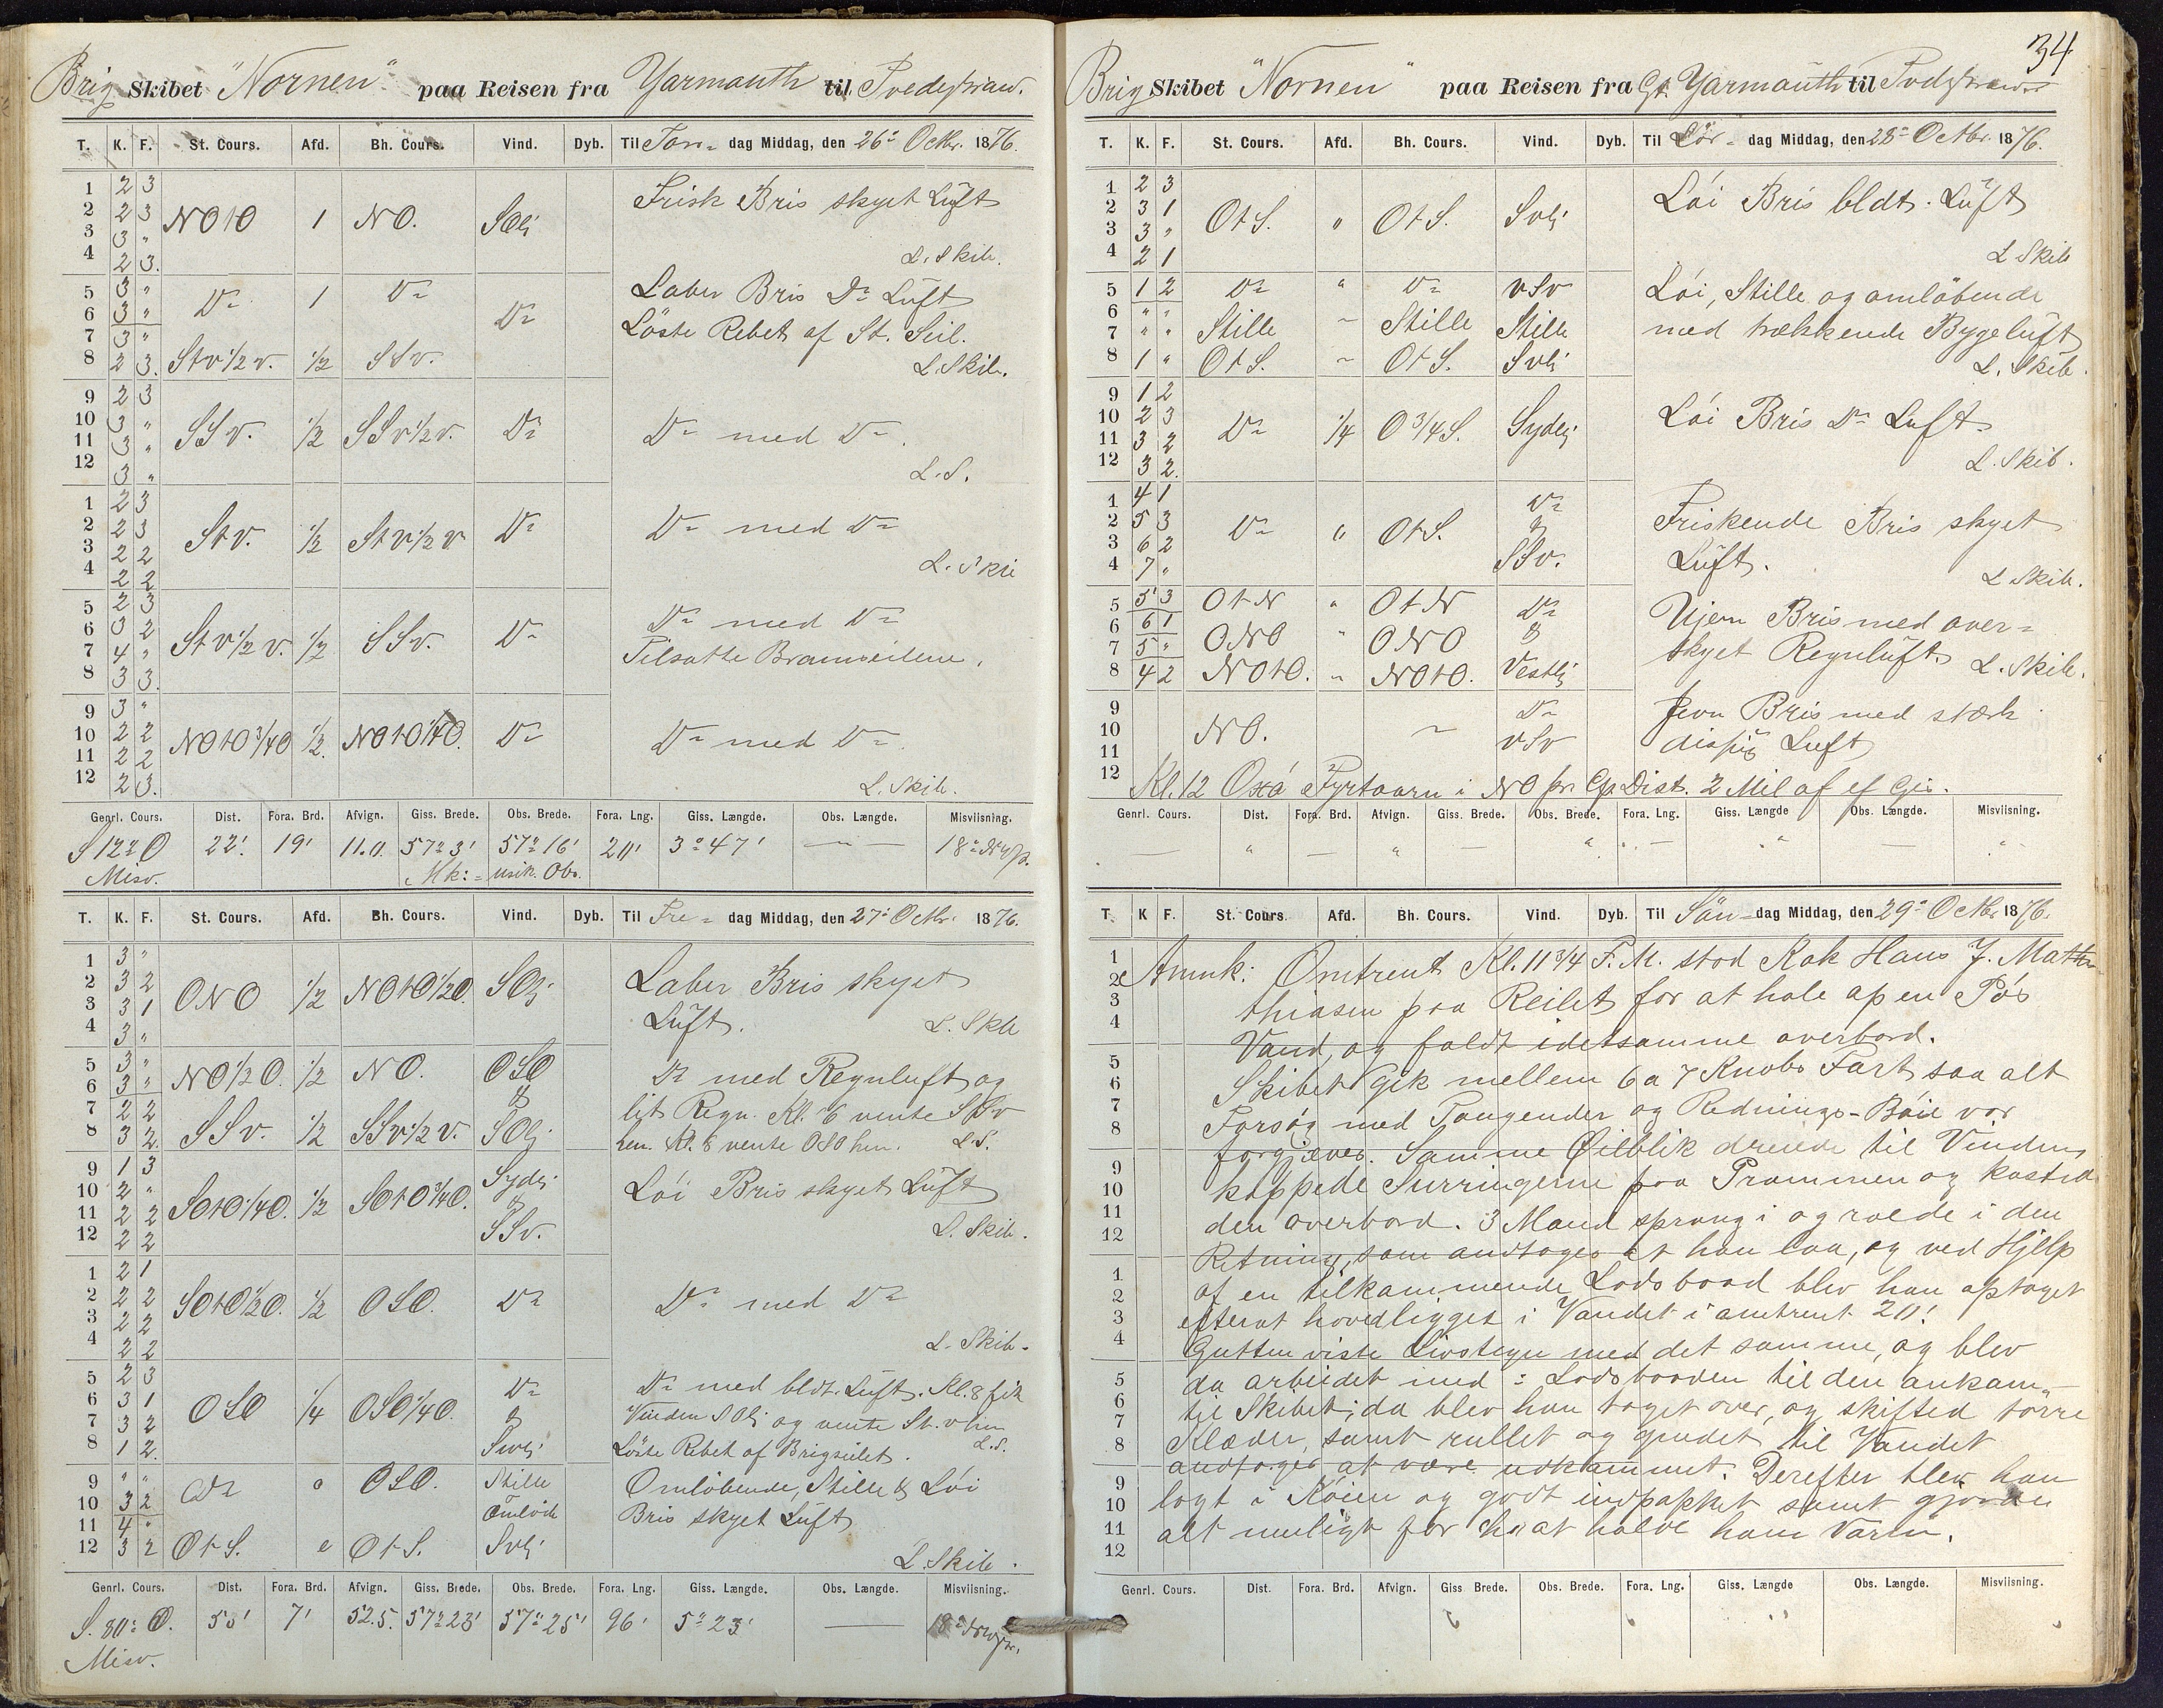 Brig Skibet "Nornen" paa Reisen fra Yarmouth til Tvedestrand.
T. K. F. St. Cours. Afd. Bh. Cours. Vind. Dyb. Til Tors- dag Middag, den 26' Octbr. 1876.
1 2 3
2 2 3 NOtO 1 NO. SOlj Frisk Bris skyet Luft
3 3 "
4 2 3. L. Skib.
5 3 " Do 1 Do Do Laber Bris Do Luft
6 3 " Løste Rebet af St. Seil.
7 3 "
8 2 3. Stv 1/2 v. 1/2 SSv. L. Skib.
9 2 3
10 3 " SSv. 1/2 SSv 1/2 v. Do Do med Do.
11 3 "
12 3 " L. S.
1 2 3
2 2 3 Stv. 1/2 Stv 1/2 v Do Do med Do
3 2 2
4 2 2 L. Skib
5 2 3
6 3 2 Stv 1/2 v. 1/2 SSv. Do Do med Do
7 4 " Tilsatte Bramseilene.
8 3 3.
9 3 "
10 2 2 NOtO 3/4 O 1/2 NOtO 1/4 O. Do Do med Do.
11 2 2
12 2 3. L. Skib.
Genrl. Cours. Dist. Fora. Brd. Afvign. Giss. Brede. Obs. Brede. Fora. Lng. Giss. Længde. Obs. Længde. Misviisning.
S 12° O 22'. 19' 11.0 57° 3' 57° 16' 20' 3° 47' — 18° NVp.
Misv. Mk: = usik. Obs.
T. K. F. St. Cours. Afd. Bh. Cours. Vind. Dyb. Til Fre- dag Middag, den 27' Octbr. 1876.
1 3 "
2 3 2 ONO 1/2 NOtO 1/2 O. SOlj Laber Bris skyet
3 3 1 Luft.
4 3 " L. Skb
5 3 " NO 1/2 O. 1/2 NO. OSO Do med Regnluft og
6 3 " &
7 2 2 SSv. 1/2 SSv 1/2 v. SOlj let Regn. Kl. 6 vente SSv
8 3 2. hen. Kl. 8 vente OSO hen. L. S.
9 1 3 Sydlj
10 2 " SOtO 1/4 O. 1/2 SOtO 3/4 O. & Løi Bris skyet Luft
11 2 2
12 2 2 SSv. L. Skib.
1 2 1
2 2 2 SOtO 1/2 O. 1/2 OSO. Do Do med Do
3 2 2
4 2 2 L. Skib.
5 2 3 Do Do med bldt. Luft. Kl. 8 fik
6 3 1 OSO 1/4 OSO 1/4 O. & Vinden SOlj og vente St. v hen
7 3 2
8 1 2. Svlj Løste Rebet af Brigseilet. L.S.
9 " " Do " OSO. Stille Omløbende, Stille & Løi
10 3 2 Omløb Bris skyet Luft
11 4 "
12 3 2 OtS. " OtS. Svlj L. Skib.
Genrl. Cours. Dist. Fora. Brd. Afvign. Giss. Brede. Obs. Brede. Fora. Lng. Giss. Længde. Obs. Længde. Misviisning.
S. 80° O. 53' 7' 52.5. 57° 23' 57° 25' 96' 5° 23' — 18°
Misv.
34
Brig Skibet "Nornen" paa Reisen fra Gt. Yarmouth til Tvdstrand
T. K. F. St. Cours. Afd. Bh. Cours. Vind. Dyb. Til Lör- dag Middag, den 28' Octbr. 1876.
1 2 3
2 3 1 OtS. " OtS. Svlj Løi Bris bldt. Luft
3 3 "
4 2 1 L Skib
5 1 2 Do " Do vSv Løi, Stille og omløbende
6 " "
7 " " Stille " Stille Stille med trækkende Bygeluft
8 1 " OtS. " OtS. Svlj L. Skib.
9 1 2
10 2 3 Do 1/4 O 3/4 S. Sydlj Løi Bris Do Luft.
11 3 2
12 3 2. L. Skib.
1 4 1 Do
2 5 3 Do " OtS. & Friskende Bris skyet
3 6 2 Luft.
4 7 " SSv. L Skib.
5 5 3 OtN " OtN Do Ujevn Bris med over=
6 6 1 &
7 5 " ONO " ONO skyet Regnluft.
8 4 2 NOtO. " NOtO. Vestlj L. Skib.
9 Do Jevn Bris med stærk
10 NO. " vSv disfig Luft
11
12 Kl. 12 Oxø Fyrtaarn i NO pr. Cp. Dist. 2 Mil af ef Gis.
Genrl. Cours. Dist. Fora. Brd. Afvign. Giss. Brede. Obs. Brede. Fora. Lng. Giss. Længde Obs. Længde. Misviisning.
T. K F. St. Cours Afd. Bh. Cours. Vind. Dyb. Til Sön- dag Middag, den 29' Octbr. 1876.
1 2 3 4 5 6 7 8 9 10 11 12
1 2 3 4 5 6 7 8 9 10 11 12
Anmk: Omtrent Kl. 11 3/4 F.M. stod Kok Hans J. Mat
thiasen paa Reilet for at hale op en Pøs
Vand, og faldt idetsamme overbord.
Skibet gik mellem 6 a 7 Knobs Fart saa alt
Forsøg med Tougender og Rednings-Bøie var
forgjæves. Samme Øilblik dreiede til Vinden,
kappede Surringerne paa Prammen og kasted
den overbord. 3 Mand sprang i og roede i den
Retning, som andtoges at han laa, og ved Hjelp
af en tilkommende Lodsbaad blev han optaget
efterat hovedligget i Vandet i omtrent 20'.
Gutten viste Livstegn med det samme, og blev
da arbeidet med i Lodsbaaden til den ankom
til Skibet; da blev han taget over, og skifted tørre
Klæder, samt rullet og gnedet til Vandet
andtoges at være udkommet. Derefter blev han
lagt i Køien og godt indpakket samt gjorden
alt muligt for at holde ham varm.
Genrl. Cours. Dist. Fora. Brd. Afvign. Giss Brede. Obs. Brede. Fora. Lng. Giss. Længde Obs. Længde. Misviisning.